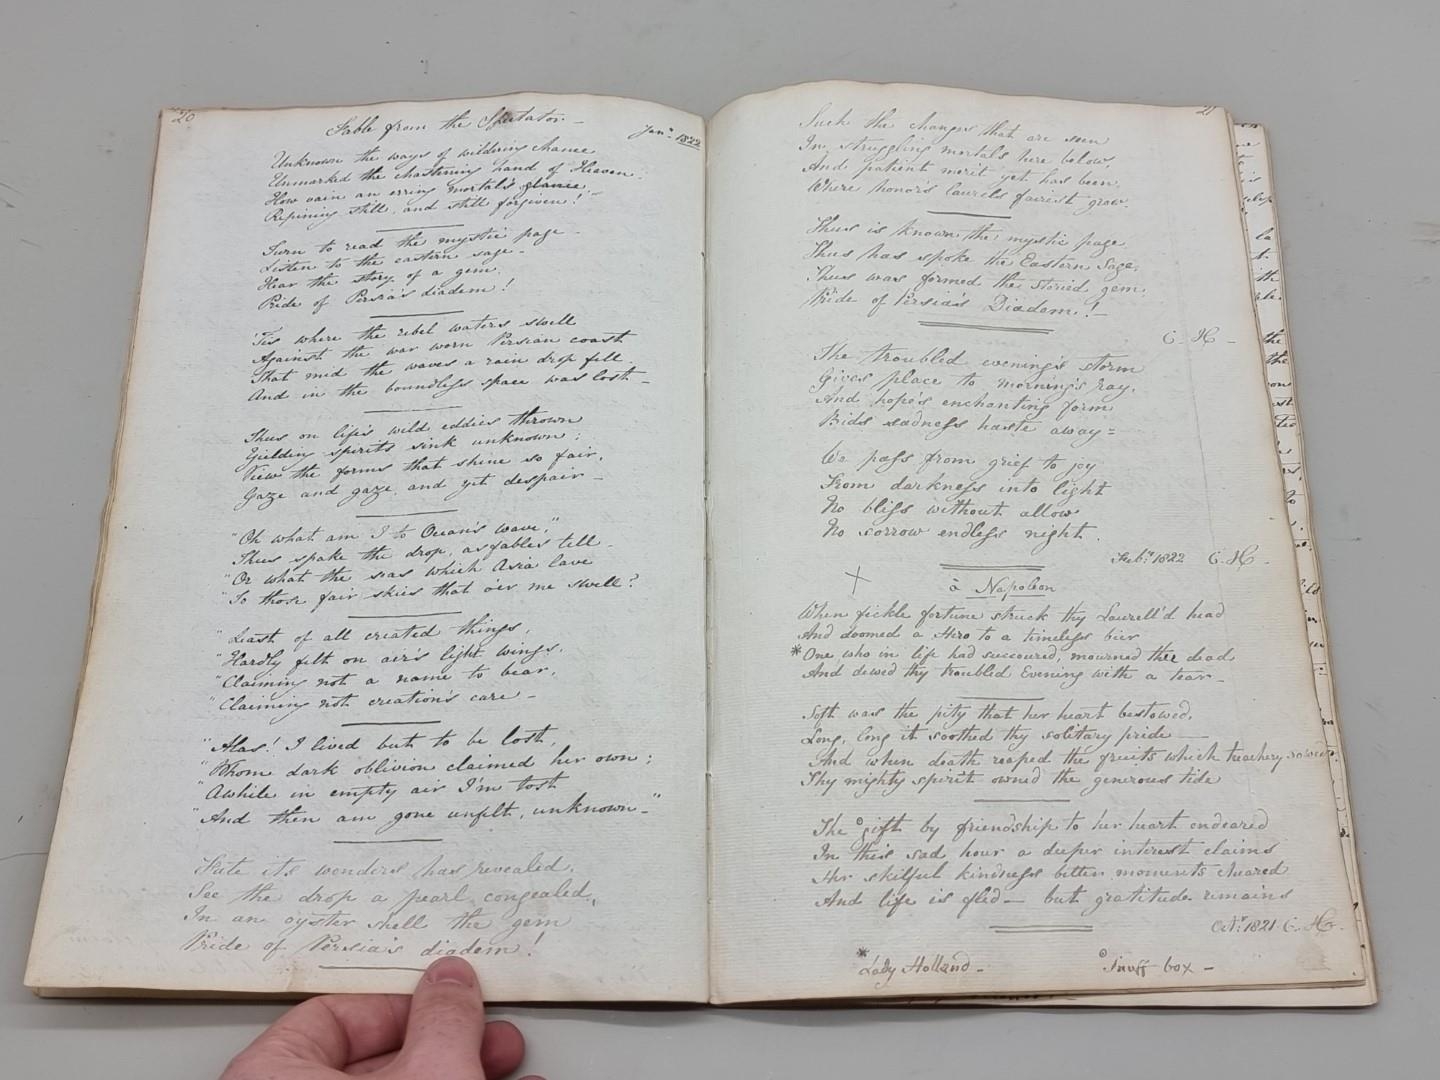 20
Fable from the Spectator. —
Jany. 1822
Unknown the ways of wildering chance
Unmarked the chastening hand of Heaven.
How vain an erring mortal's glance
Repining still, and still forgiven!
Turn to read the mystic page —
Listen to the eastern sage —
Hear the story of a gem,
Pride of Persia's diadem!
'Tis where the rebel waters swell
Against the war worn Persian coast
That mid the waves a rain drop fell
And in the boundless space was lost —
Thus on life's wild eddies thrown
Yielding spirits sink unknown;
View the forms that shine so fair,
Gaze and gaze, and yet despair —
"Oh what am I to Ocean's wave,"
Thus spake the drop, as fables tell —
"Or what the seas which Asia lave
"To those fair skies that o'er me swell?
"Least of all created things,
"Hardly felt on air's light wings,
"Claiming not a name to bear,
"Claiming not creation's care —
"Alas! I lived but to be lost,
"Whom dark oblivion claimed her own;
"Awhile in empty air I'm tost
"And then am gone unfelt, unknown —"
Fate it's wonders has revealed,
See the drop a pearl congealed,
In an oyster shell the gem
Pride of Persia's diadem!
21
Such the changes that are seen
In struggling mortals here below
And patient merit yet has been
Where honor's laurels fairest grow.
Thus is known the mystic page
Thus has spoke the Eastern Sage,
Thus was formed the storied gem
Pride of Persia's Diadem! —
C. H —
The troubled evening's storm
Gives place to morning's ray,
And hope's enchanting form
Bids sadness haste away =
We pass from grief to joy
From darkness into light
No bliss without alloy
No sorrow endless night.
Feby. 1822 C. H —
à Napoleon
When fickle fortune struck thy Laurell'd head
And doomed a Hero to a timeless bier
*One who in life had succoured, mourned thee dead
And dewed thy troubled Evening with a tear —
Soft was the pity that her heart bestowed,
Long, long it soothed thy solitary pride —
And when death reaped the fruits which treachery sowed
Thy mighty spirit owned the generous tide
The °gift by friendship to her heart endeared
In this sad hour a deeper interest claims
Her skilful kindness bitter moments cheared
And life is fled — but gratitude remains
Octr. 1821 C. H —
* Lady Holland —
° Snuff box —